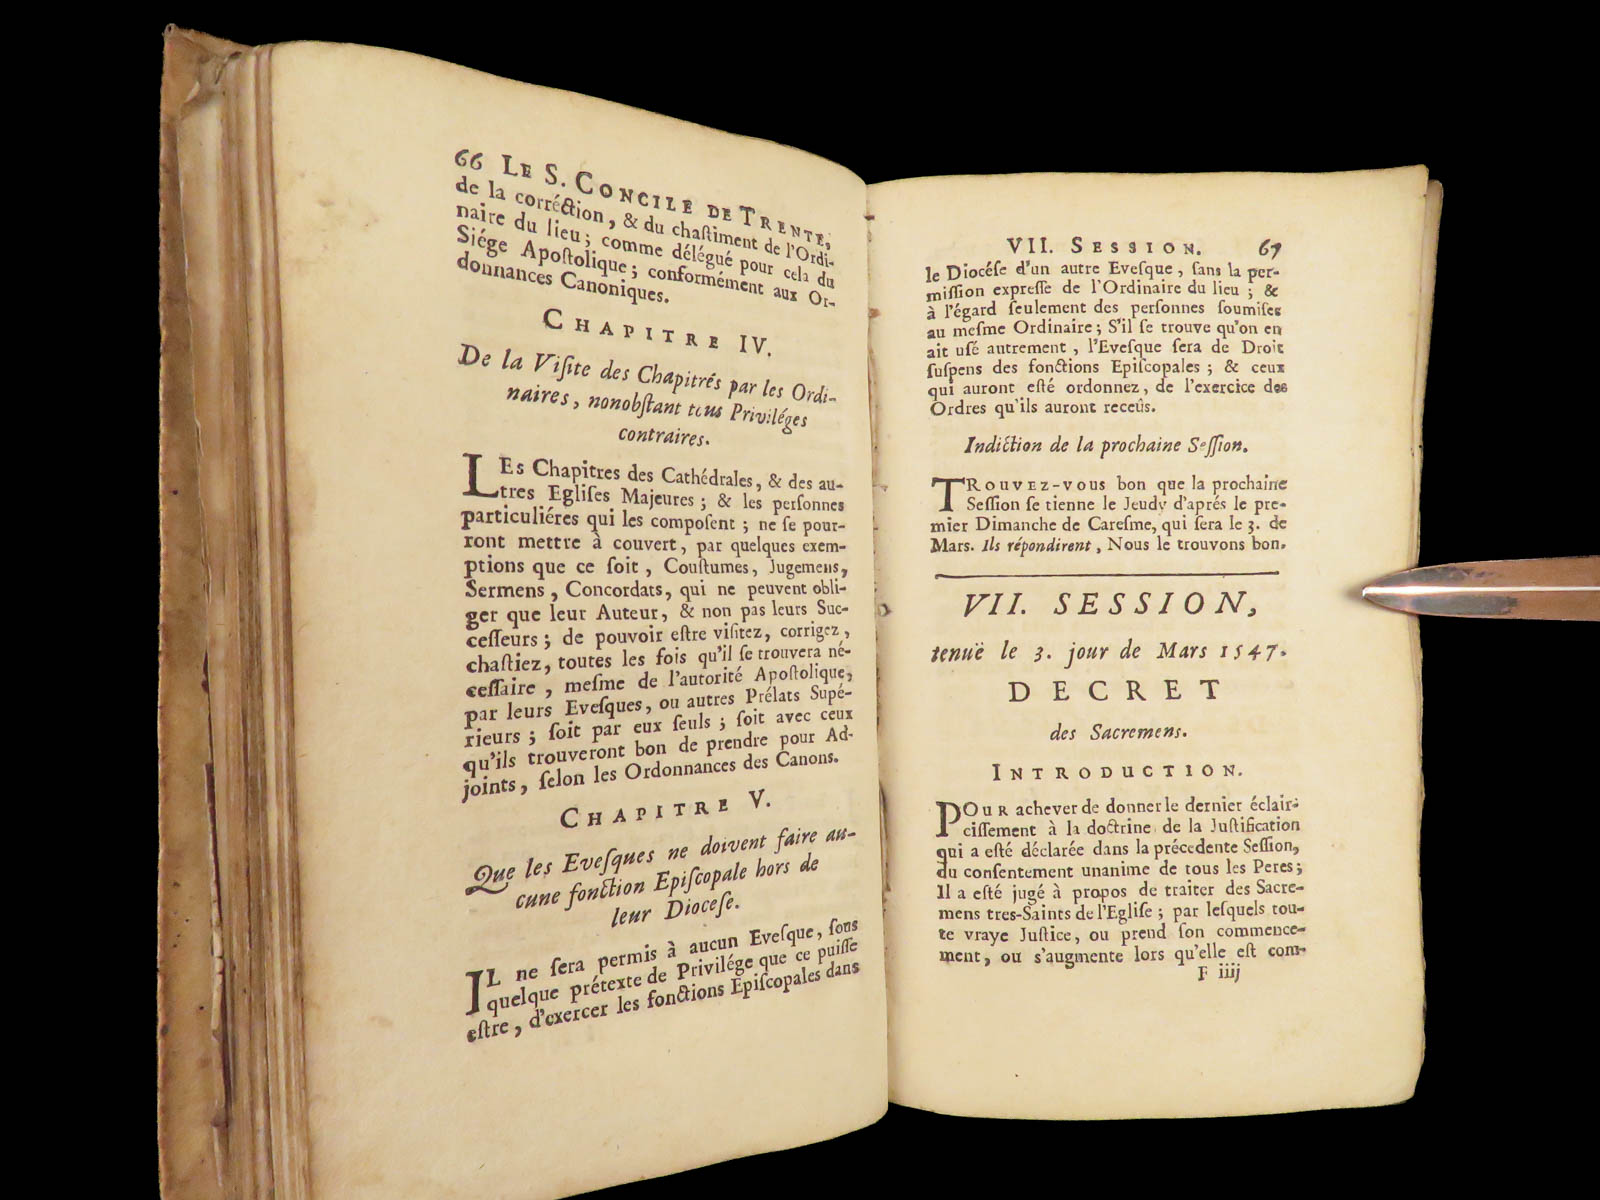 66 LE S. CONCILE DE TRENTE,
de la corréction, & du chaſtiment de l'Ordi-
naire du lieu; comme délégué pour cela du
Siége Apoſtolique; conformément aux Or-
donnances Canoniques.
CHAPITRE IV.
De la Viſite des Chapitrés par les Ordi-
naires, nonobſtant tous Priviléges
contraires.
LEs Chapitres des Cathédrales, & des au-
tres Egliſes Majeures; & les perſonnes
particuliéres qui les compoſent; ne ſe pour-
ront mettre à couvert, par quelques exem-
ptions que ce ſoit, Couſtumes, Jugemens,
Sermens, Concordats, qui ne peuvent obli-
ger que leur Auteur, & non pas leurs Suc-
ceſſeurs; de pouvoir eſtre viſitez, corrigez,
chaſtiez, toutes les fois qu'il ſe trouvera né-
ceſſaire, meſme de l'autorité Apoſtolique,
par leurs Eveſques, ou autres Prélats Supé-
rieurs; ſoit par eux ſeuls; ſoit avec ceux
qu'ils trouveront bon de prendre pour Ad-
joints, ſelon les Ordonnances des Canons.
CHAPITRE V.
Que les Eveſques ne doivent faire au-
cune fonction Epiſcopale hors de
leur Dioceſe.
IL ne ſera permis à aucun Eveſque, ſous
quelque prétexte de Privilége que ce puiſſe
eſtre, d'exercer les fonctions Epiſcopales dans
VII. SESSION. 67
le Diocéſe d'un autre Eveſque, ſans la per-
miſſion expreſſe de l'Ordinaire du lieu; &
à l'égard ſeulement des perſonnes ſoumiſes
au meſme Ordinaire; S'il ſe trouve qu'on en
ait uſé autrement, l'Eveſque ſera de Droit
ſuſpens des fonctions Epiſcopales; & ceux
qui auront eſté ordonnez, de l'exercice des
Ordres qu'ils auront receûs.
Indiction de la prochaine Seſſion.
TROUVEZ-VOUS bon que la prochaine
Seſſion ſe tienne le Jeudy d'aprés le pre-
mier Dimanche de Careſme, qui ſera le 3. de
Mars. Ils répondirent, Nous le trouvons bon.
VII. SESSION,
tenuë le 3. jour de Mars 1547.
DECRET
des Sacremens.
INTRODUCTION.
POUR achever de donner le dernier éclair-
ciſſement à la doctrine de la Juſtification
qui a eſté déclarée dans la précedente Seſſion,
du conſentement unanime de tous les Peres;
Il a eſté jugé à propos de traiter des Sacre-
mens tres-Saints de l'Egliſe; par leſquels tou-
te vraye Juſtice, ou prend ſon commence-
ment, ou s'augmente lors qu'elle eſt com-
F iiij